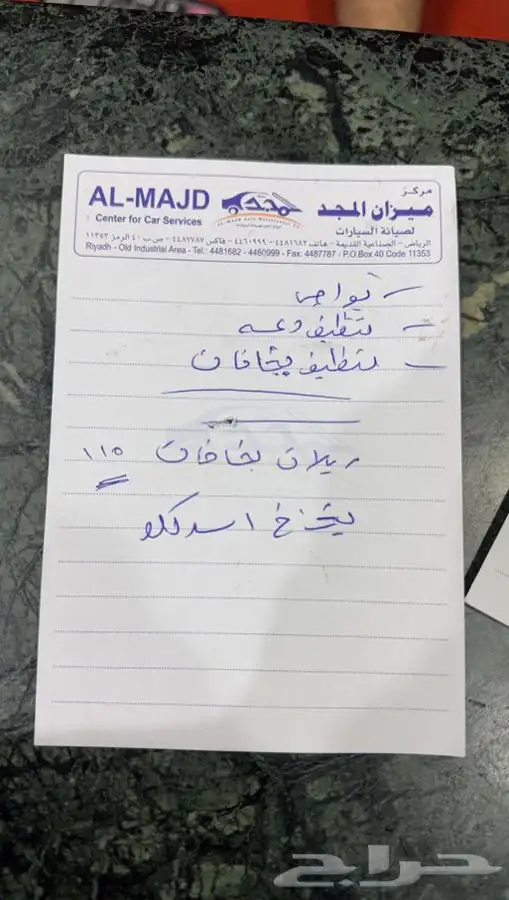 مركز
ميزان المجد
لصيانة السيارات
AL-MAJD
Center for Car Services
الرياض - الصناعية القديمة - هاتف ٤٤٨١٦٨٢ - ٤٤٦٠٩٩٩ - فاكس ٤٤٨٧٧٨٧ - ص.ب ٤٠ الرمز ١١٣٥٣
Riyadh - Old Industrial Area - Tel.: 4481682 - 4460999 - Fax: 4487787 / P.O.Box 40 Code 11353
- بواجي
- تنظيف
- تنظيف بخاخات
ربلات بخاخات ١١٥
حراج